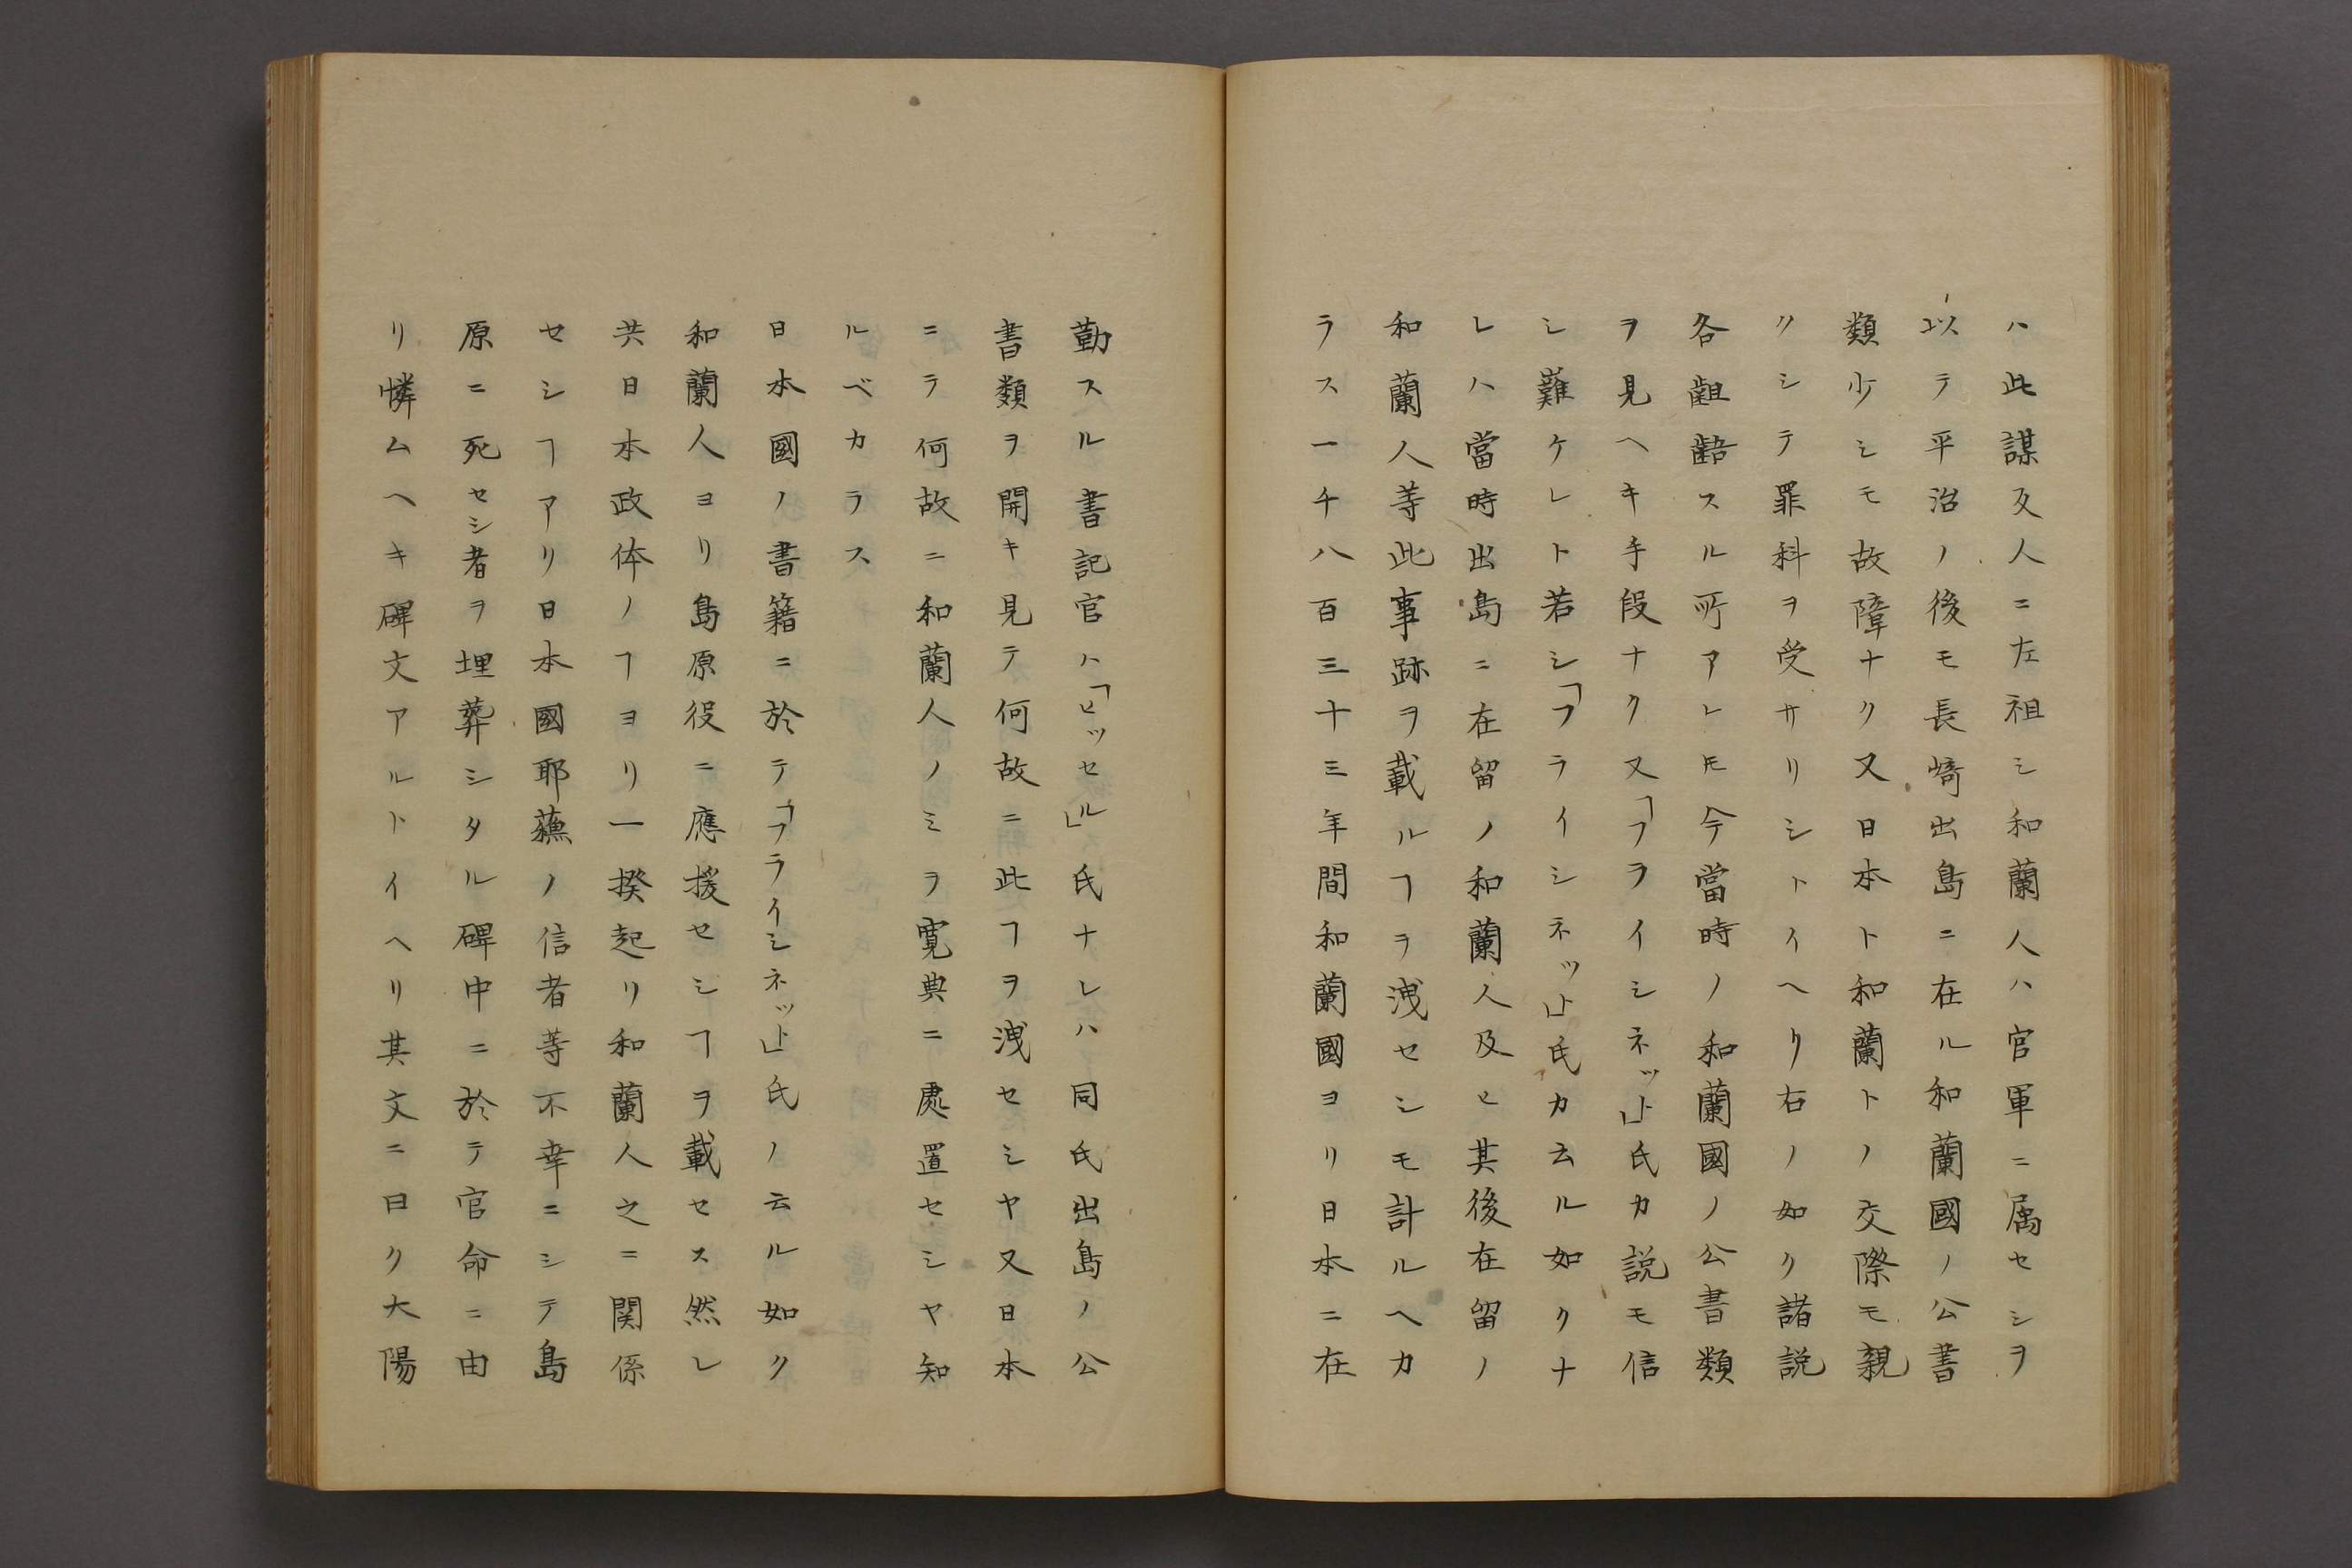 ハ此謀反人ニ左袒シ和蘭人ハ官軍ニ属セシヲ
以テ平治ノ後モ長崎出島ニ在ル和蘭國ノ公書
類少シモ故障ナク又日本ト和蘭トノ交際モ親
クシテ罪科ヲ受サリシトイヘリ右ノ如ク諸説
各齟齬スル所アレ𪜈今當時ノ和蘭國ノ公書類
ヲ見ヘキ手段ナク又「フライシネット」氏カ説モ信
シ難ケレト若シ「フライシネット」氏カ云ル如クナ
レハ當時出島ニ在留ノ和蘭人及ヒ其後在留ノ
和蘭人等此事跡ヲ載ルヿヲ洩セシモ計ルヘカ
ラス一千八百三十三年間和蘭國ヨリ日本ニ在
勤スル書記官ハ「ヒッセル」氏ナレハ同氏出島ノ公
書類ヲ開キ見テ何故ニ此ヿヲ洩セシヤ又日本
ニテ何故ニ和蘭人ノミヲ寛典ニ處置セシヤ知
ルベカラス
日本國ノ書籍ニ於テ「フライシネット」氏ノ云ル如ク
和蘭人ヨリ島原役ニ應援セシヿヲ載セス然レ
共日本政体ノヿヨリ一揆起リ和蘭人之ニ関係
セシヿアリ日本國耶蘇ノ信者等不幸ニシテ島
原ニ死セシ者ヲ埋葬シタル碑中ニ於テ官命ニ由
リ憐ムヘキ碑文アルトイヘリ其文ニ曰ク大陽